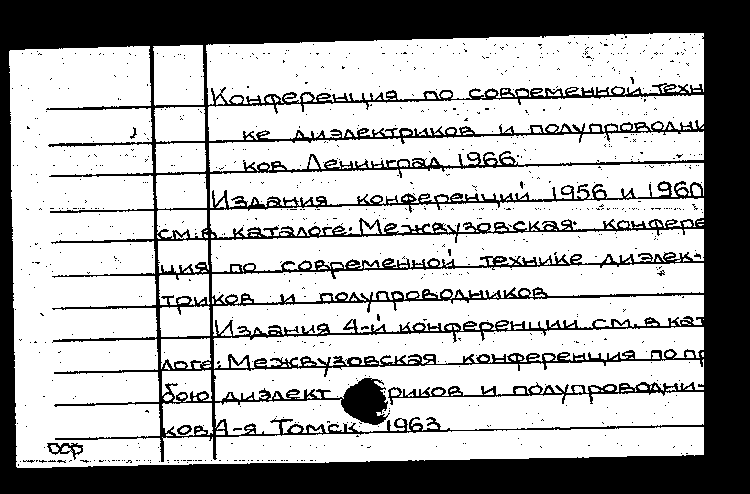 Конференция по современной техни
ке диэлектриков и полупроводни
ков Ленинград 1966
Издания конференций 1956 и 1960
см. в каталоге: Межвузовская конферен
ция по современной технике диэлек-
триков и полупроводников
Издания 4-й конференции см. в ката
логе: Межвузовская конференция по про
бою диэлектриков и полупроводни-
ков, 4-я. Томск 1963.
оср